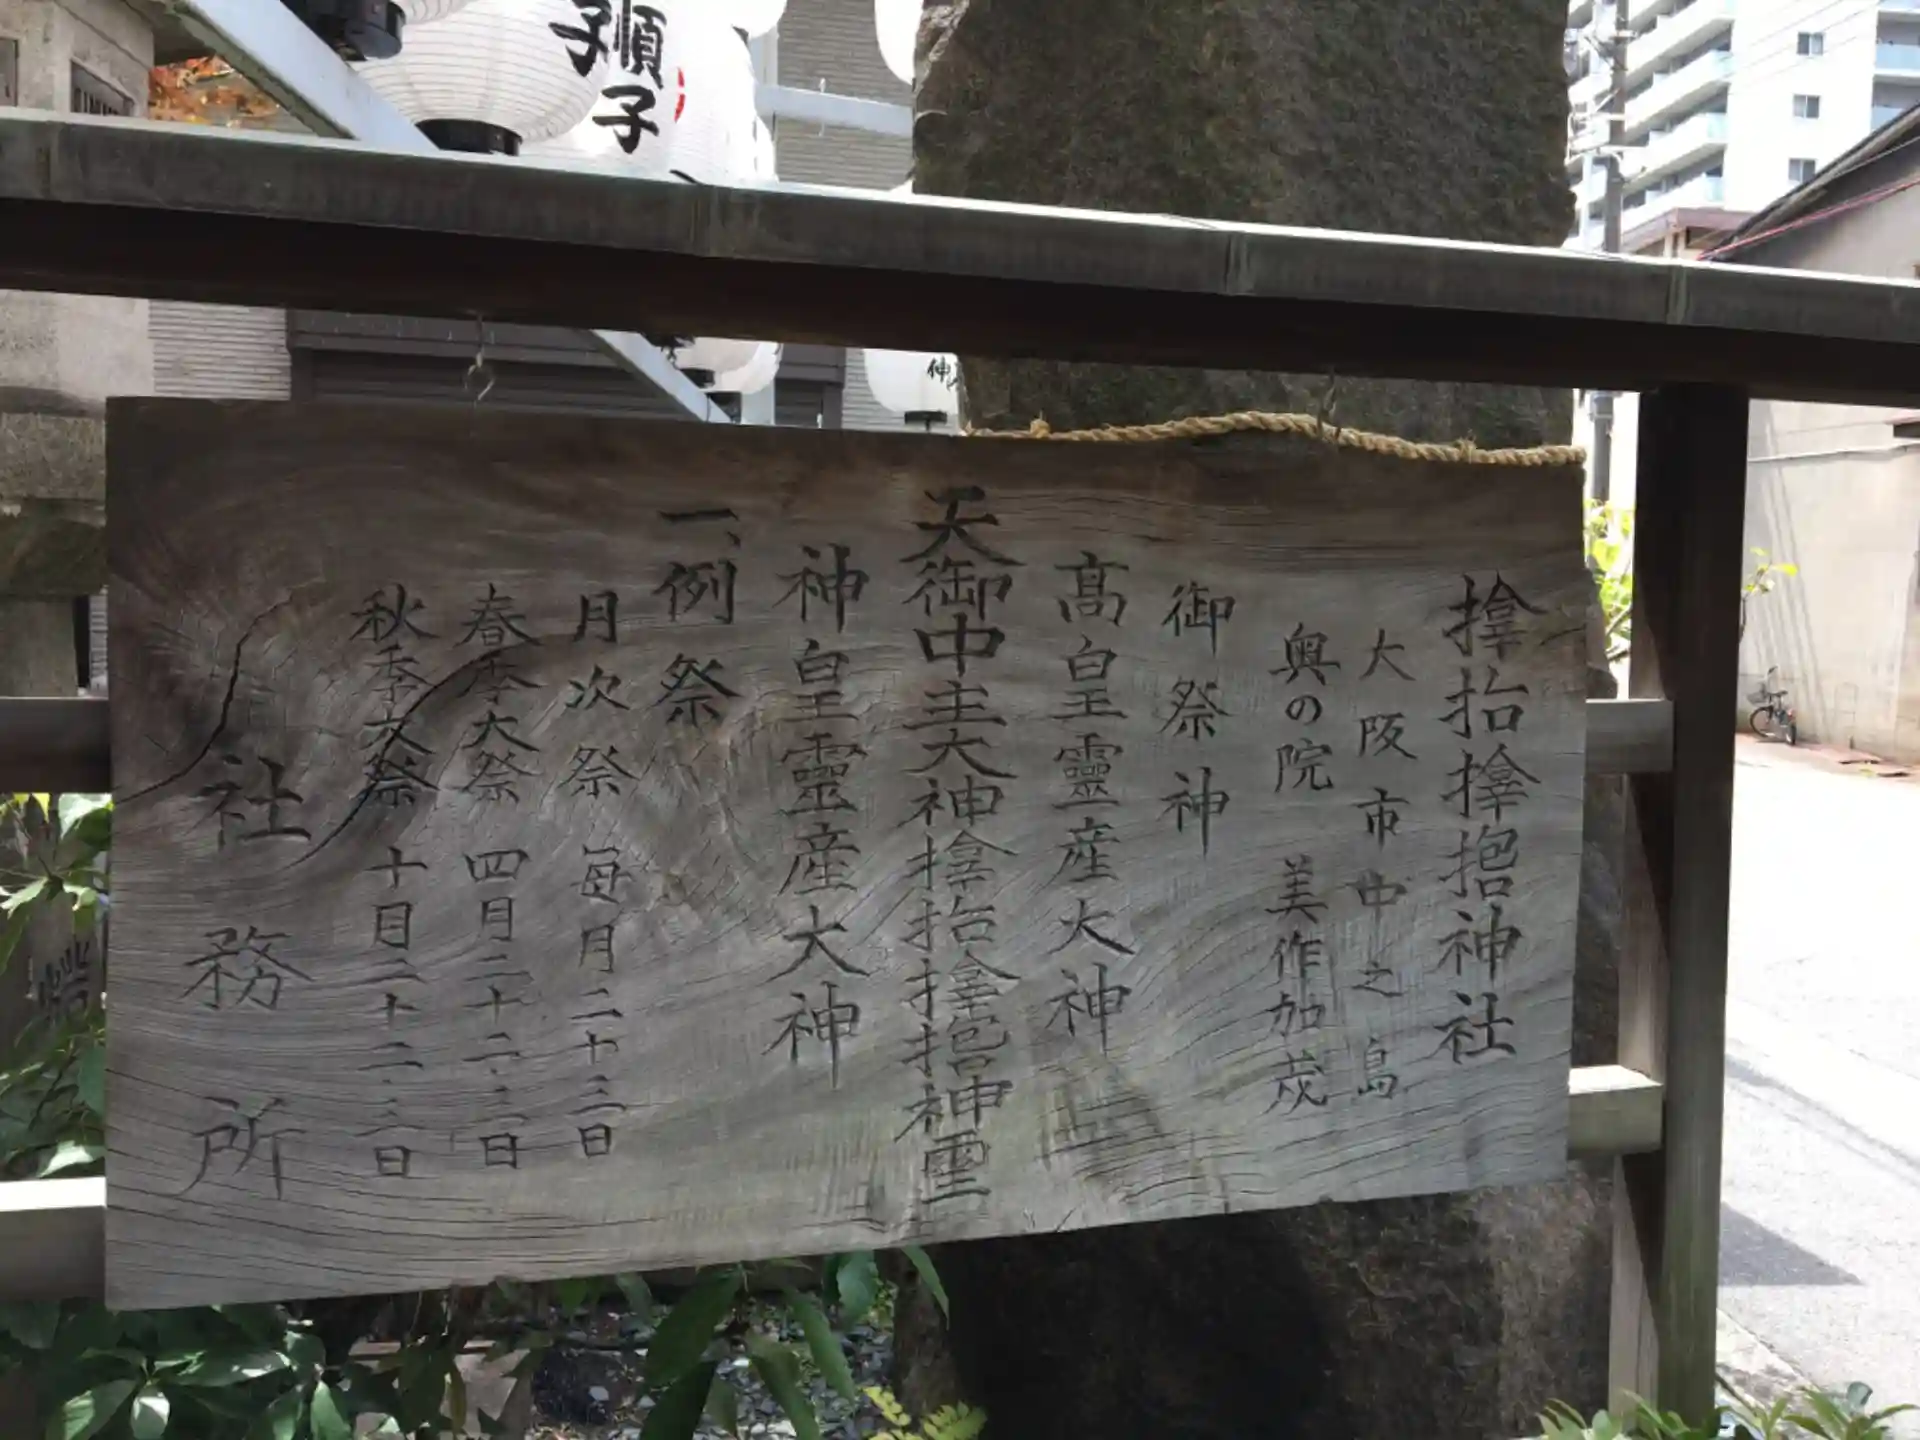 𪮷抬𪮷𪮇神社
大阪市中之島
奥の院 美作加茂
御祭神
髙皇靈産大神
天御中主大神𪮷抬𪮷𪮇神霊
神皇靈産大神
一、例祭
月次祭 毎月二十三日
春季大祭 四月二十二・三日
秋季大祭 十月二十二・三日
社務所
順子
子